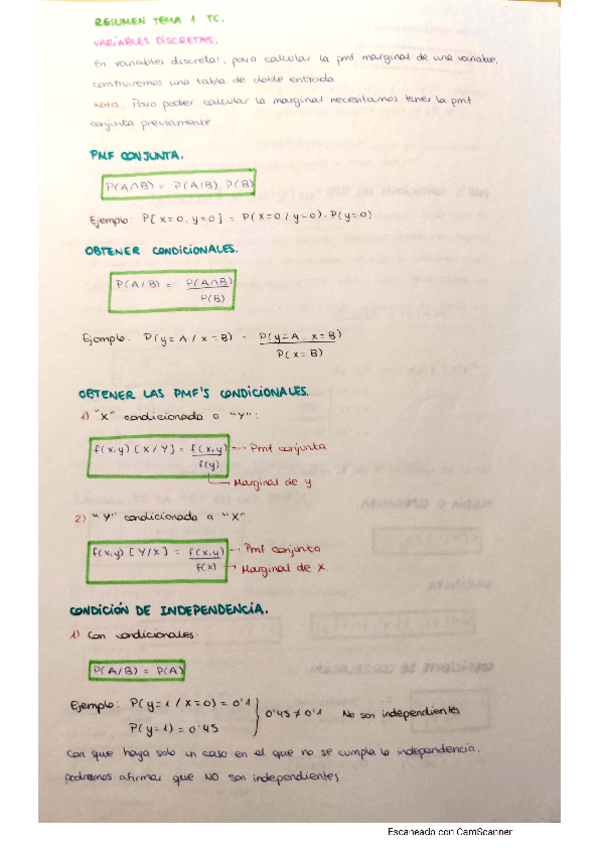 RESUMEN TEMA 1 TC.
VARIABLES DISCRETAS.
En variables discretas, para calcular la pmf marginal de una variable,
construiremos una tabla de doble entrada.
Nota: Para poder calcular la marginal necesitamos tener la pmf
conjunta previamente
PMF CONJUNTA.
P(A∩B) = P(A/B). P(B)
Ejemplo: P[x=0, y=0] = P(x=0/y=0). P(y=0)
OBTENER CONDICIONALES.
P(A/B) = P(A∩B)
P(B)
Ejemplo: P(y=A/x=B) = P(y=A, x=B)
P(x=B)
OBTENER LAS PMF'S CONDICIONALES.
1) "X" condicionada a "Y":
f(x,y) [X/Y] = f(x,y) Pmf conjunta
f(y)
Marginal de y
2) "Y" condicionada a "X"
f(x,y) [Y/X] = f(x,y) Pmf conjunta
f(x) Marginal de x.
CONDICIÓN DE INDEPENDENCIA.
1) Con condicionales:
P(A/B) = P(A)
Ejemplo: P(y=1/x=0) = 0'1
0'45 ≠ 0'1 No son independientes
P(y=1) = 0'45
Con que haya solo un caso en el que no se cumpla la independencia,
podremos afirmar que NO son independientes
Escaneado con CamScanner